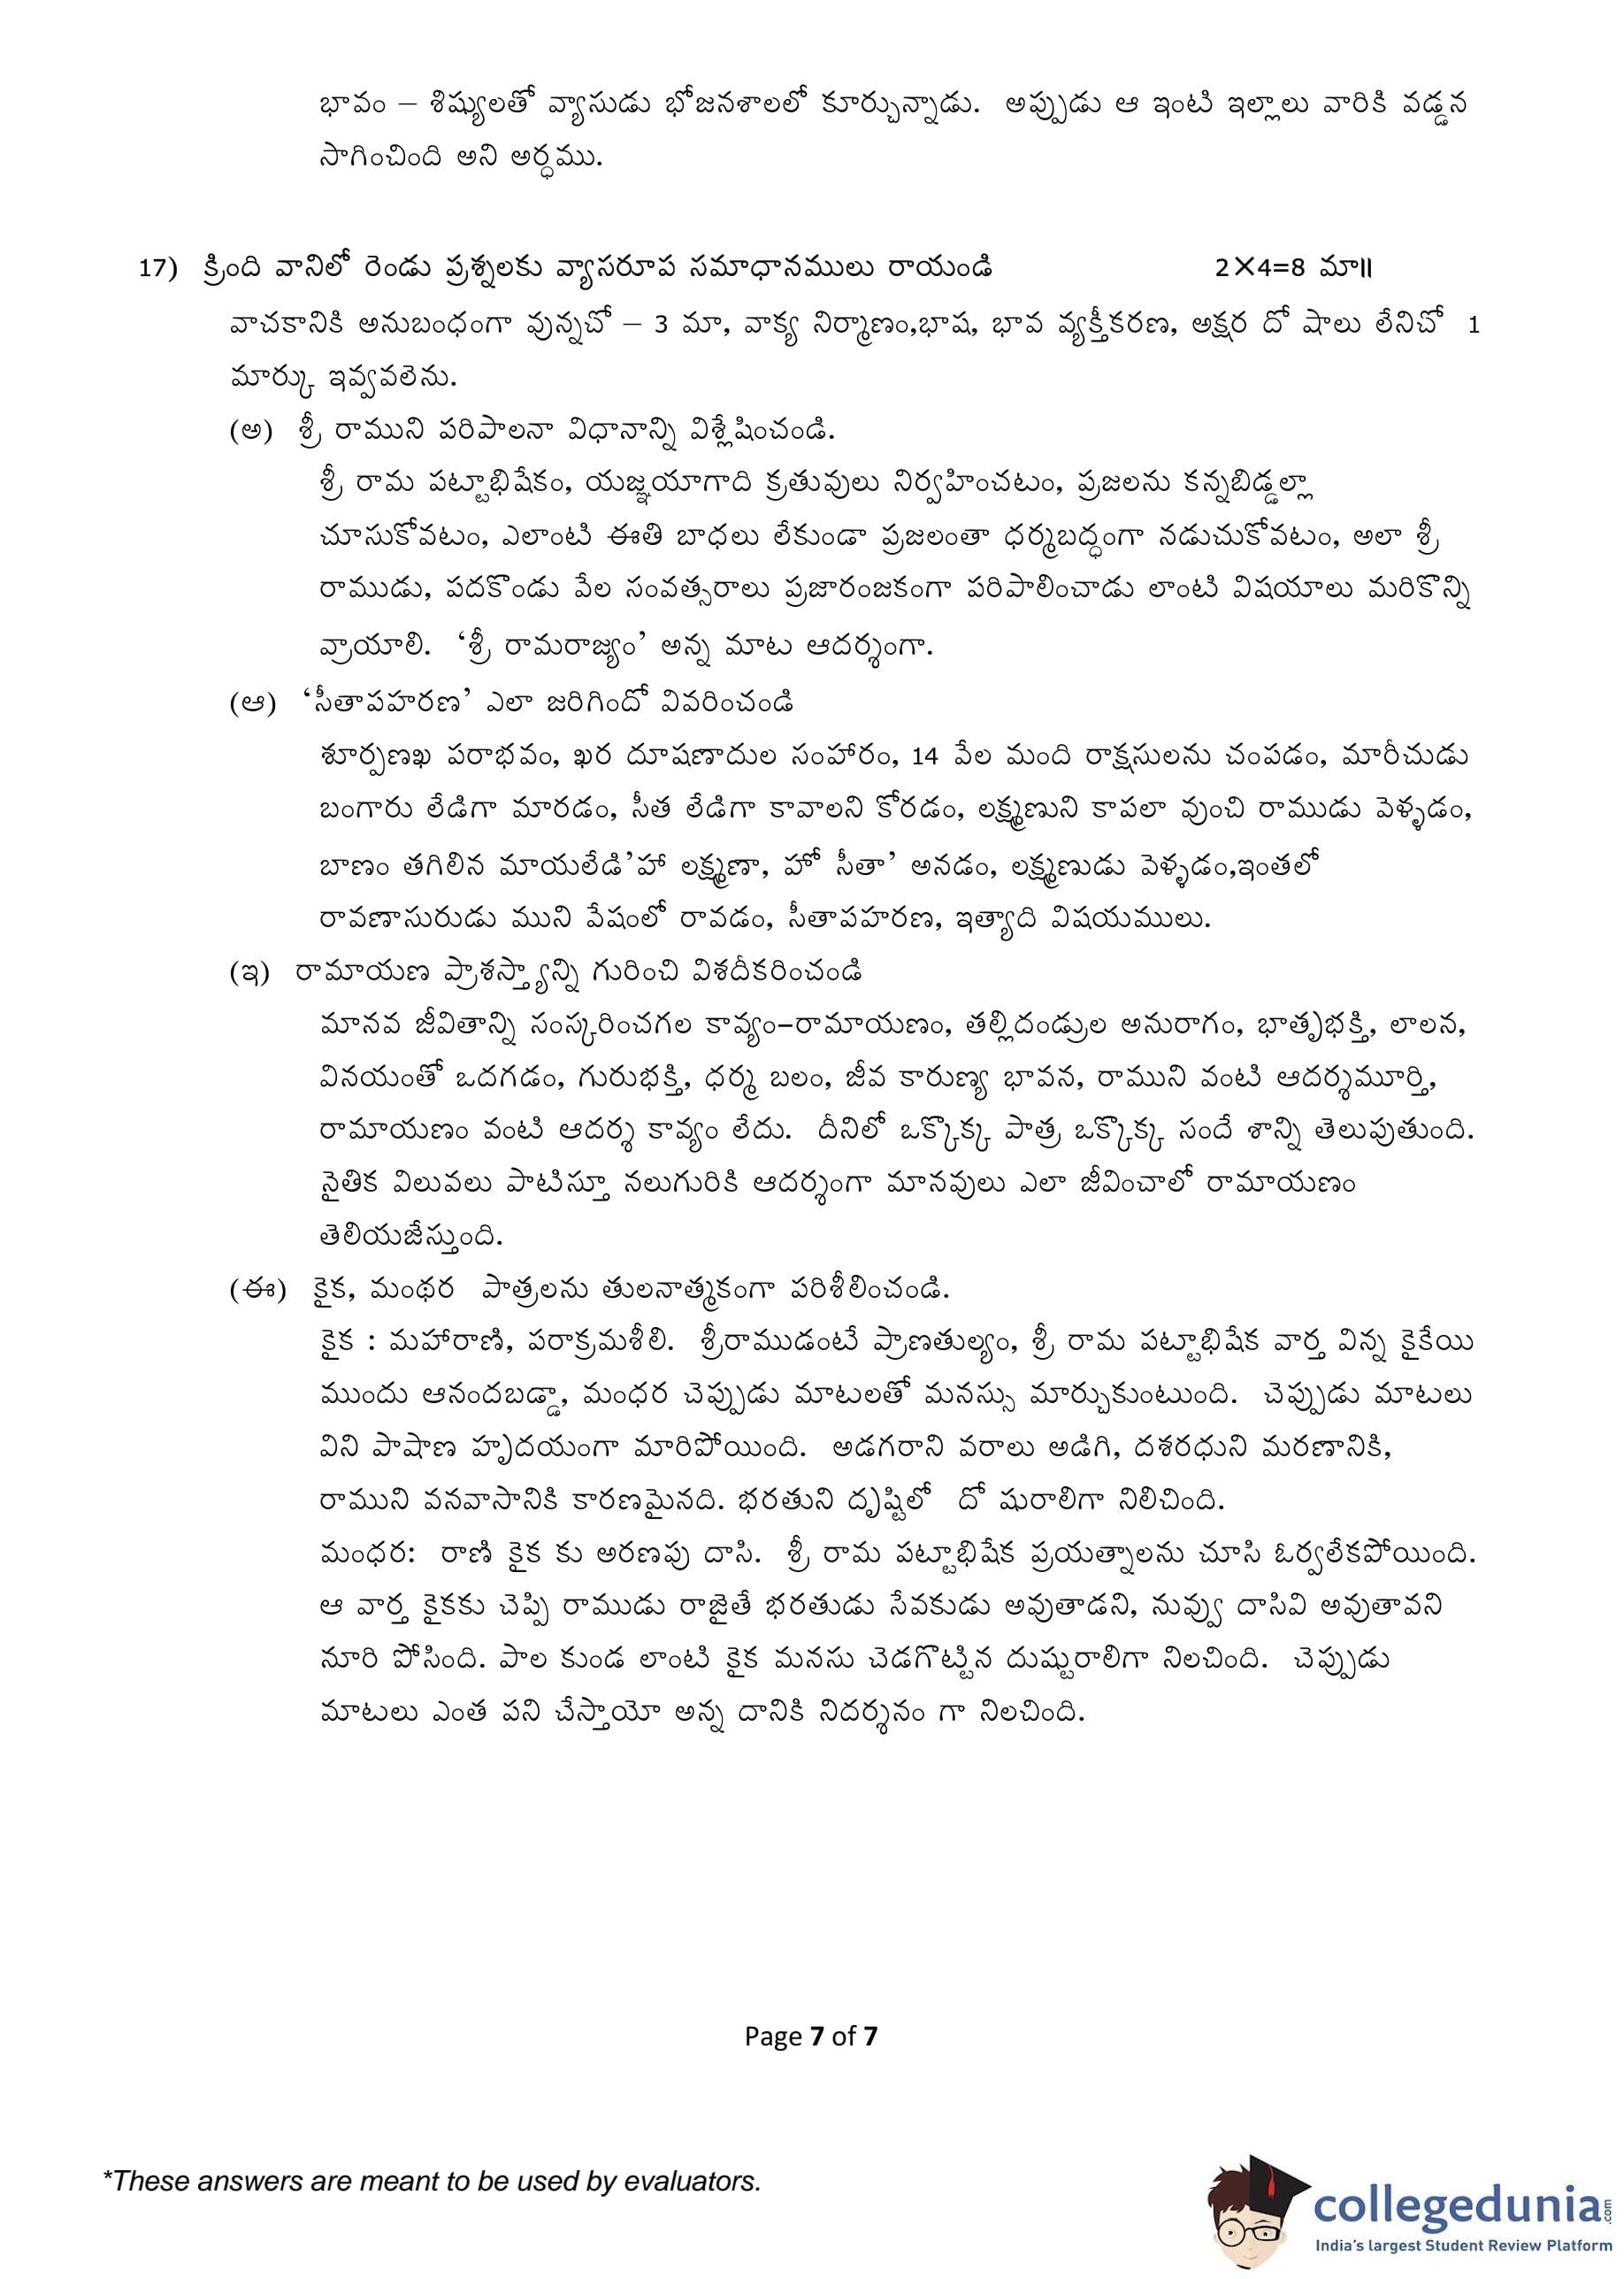 భావం – శిష్యులతో వ్యాసుడు భోజనశాలలో కూర్చున్నాడు. అప్పుడు ఆ ఇంటి ఇల్లాలు వారికి వడ్డన
సాగించింది అని అర్ధము.
17) క్రింది వానిలో రెండు ప్రశ్నలకు వ్యాసరూప సమాధానములు రాయండి 2×4=8 మా॥
వాచకానికి అనుబంధంగా వున్నచో – 3 మా, వాక్య నిర్మాణం,భాష, భావ వ్యక్తీకరణ, అక్షర దో షాలు లేనిచో 1
మార్కు ఇవ్వవలెను.
(అ) శ్రీ రాముని పరిపాలనా విధానాన్ని విశ్లేషించండి.
శ్రీ రామ పట్టాభిషేకం, యజ్ఞయాగాది క్రతువులు నిర్వహించటం, ప్రజలను కన్నబిడ్డల్లా
చూసుకోవటం, ఎలాంటి ఈతి బాధలు లేకుండా ప్రజలంతా ధర్మబద్ధంగా నడుచుకోవటం, అలా శ్రీ
రాముడు, పదకొండు వేల సంవత్సరాలు ప్రజారంజకంగా పరిపాలించాడు లాంటి విషయాలు మరికొన్ని
వ్రాయాలి. ‘శ్రీ రామరాజ్యం’ అన్న మాట ఆదర్శంగా.
(ఆ) ‘సీతాపహరణ’ ఎలా జరిగిందో వివరించండి
శూర్పణఖ పరాభవం, ఖర దూషణాదుల సంహారం, 14 వేల మంది రాక్షసులను చంపడం, మారీచుడు
బంగారు లేడిగా మారడం, సీత లేడిగా కావాలని కోరడం, లక్ష్మణుని కాపలా వుంచి రాముడు వెళ్ళడం,
బాణం తగిలిన మాయలేడి’హా లక్ష్మణా, హో సీతా’ అనడం, లక్ష్మణుడు వెళ్ళడం,ఇంతలో
రావణాసురుడు ముని వేషంలో రావడం, సీతాపహరణ, ఇత్యాది విషయములు.
(ఇ) రామాయణ ప్రాశస్త్యాన్ని గురించి విశదీకరించండి
మానవ జీవితాన్ని సంస్కరించగల కావ్యం–రామాయణం, తల్లిదండ్రుల అనురాగం, భాతృభక్తి, లాలన,
వినయంతో ఒదగడం, గురుభక్తి, ధర్మ బలం, జీవ కారుణ్య భావన, రాముని వంటి ఆదర్శమూర్తి,
రామాయణం వంటి ఆదర్శ కావ్యం లేదు. దీనిలో ఒక్కొక్క పాత్ర ఒక్కొక్క సందే శాన్ని తెలుపుతుంది.
నైతిక విలువలు పాటిస్తూ నలుగురికి ఆదర్శంగా మానవులు ఎలా జీవించాలో రామాయణం
తెలియజేస్తుంది.
(ఈ) కైక, మంథర పాత్రలను తులనాత్మకంగా పరిశీలించండి.
కైక : మహారాణి, పరాక్రమశీలి. శ్రీరాముడంటే ప్రాణతుల్యం, శ్రీ రామ పట్టాభిషేక వార్త విన్న కైకేయి
ముందు ఆనందబడ్డా, మంధర చెప్పుడు మాటలతో మనస్సు మార్చుకుంటుంది. చెప్పుడు మాటలు
విని పాషాణ హృదయంగా మారిపోయింది. అడగరాని వరాలు అడిగి, దశరధుని మరణానికి,
రాముని వనవాసానికి కారణమైనది. భరతుని దృష్టిలో దో షురాలిగా నిలిచింది.
మంధర: రాణి కైక కు అరణపు దాసి. శ్రీ రామ పట్టాభిషేక ప్రయత్నాలను చూసి ఓర్వలేకపోయింది.
ఆ వార్త కైకకు చెప్పి రాముడు రాజైతే భరతుడు సేవకుడు అవుతాడని, నువ్వు దాసివి అవుతావని
నూరి పోసింది. పాల కుండ లాంటి కైక మనసు చెడగొట్టిన దుష్టురాలిగా నిలచింది. చెప్పుడు
మాటలు ఎంత పని చేస్తాయో అన్న దానికి నిదర్శనం గా నిలచింది.
Page 7 of 7
*These answers are meant to be used by evaluators.
collegedunia.com
India's largest Student Review Platform